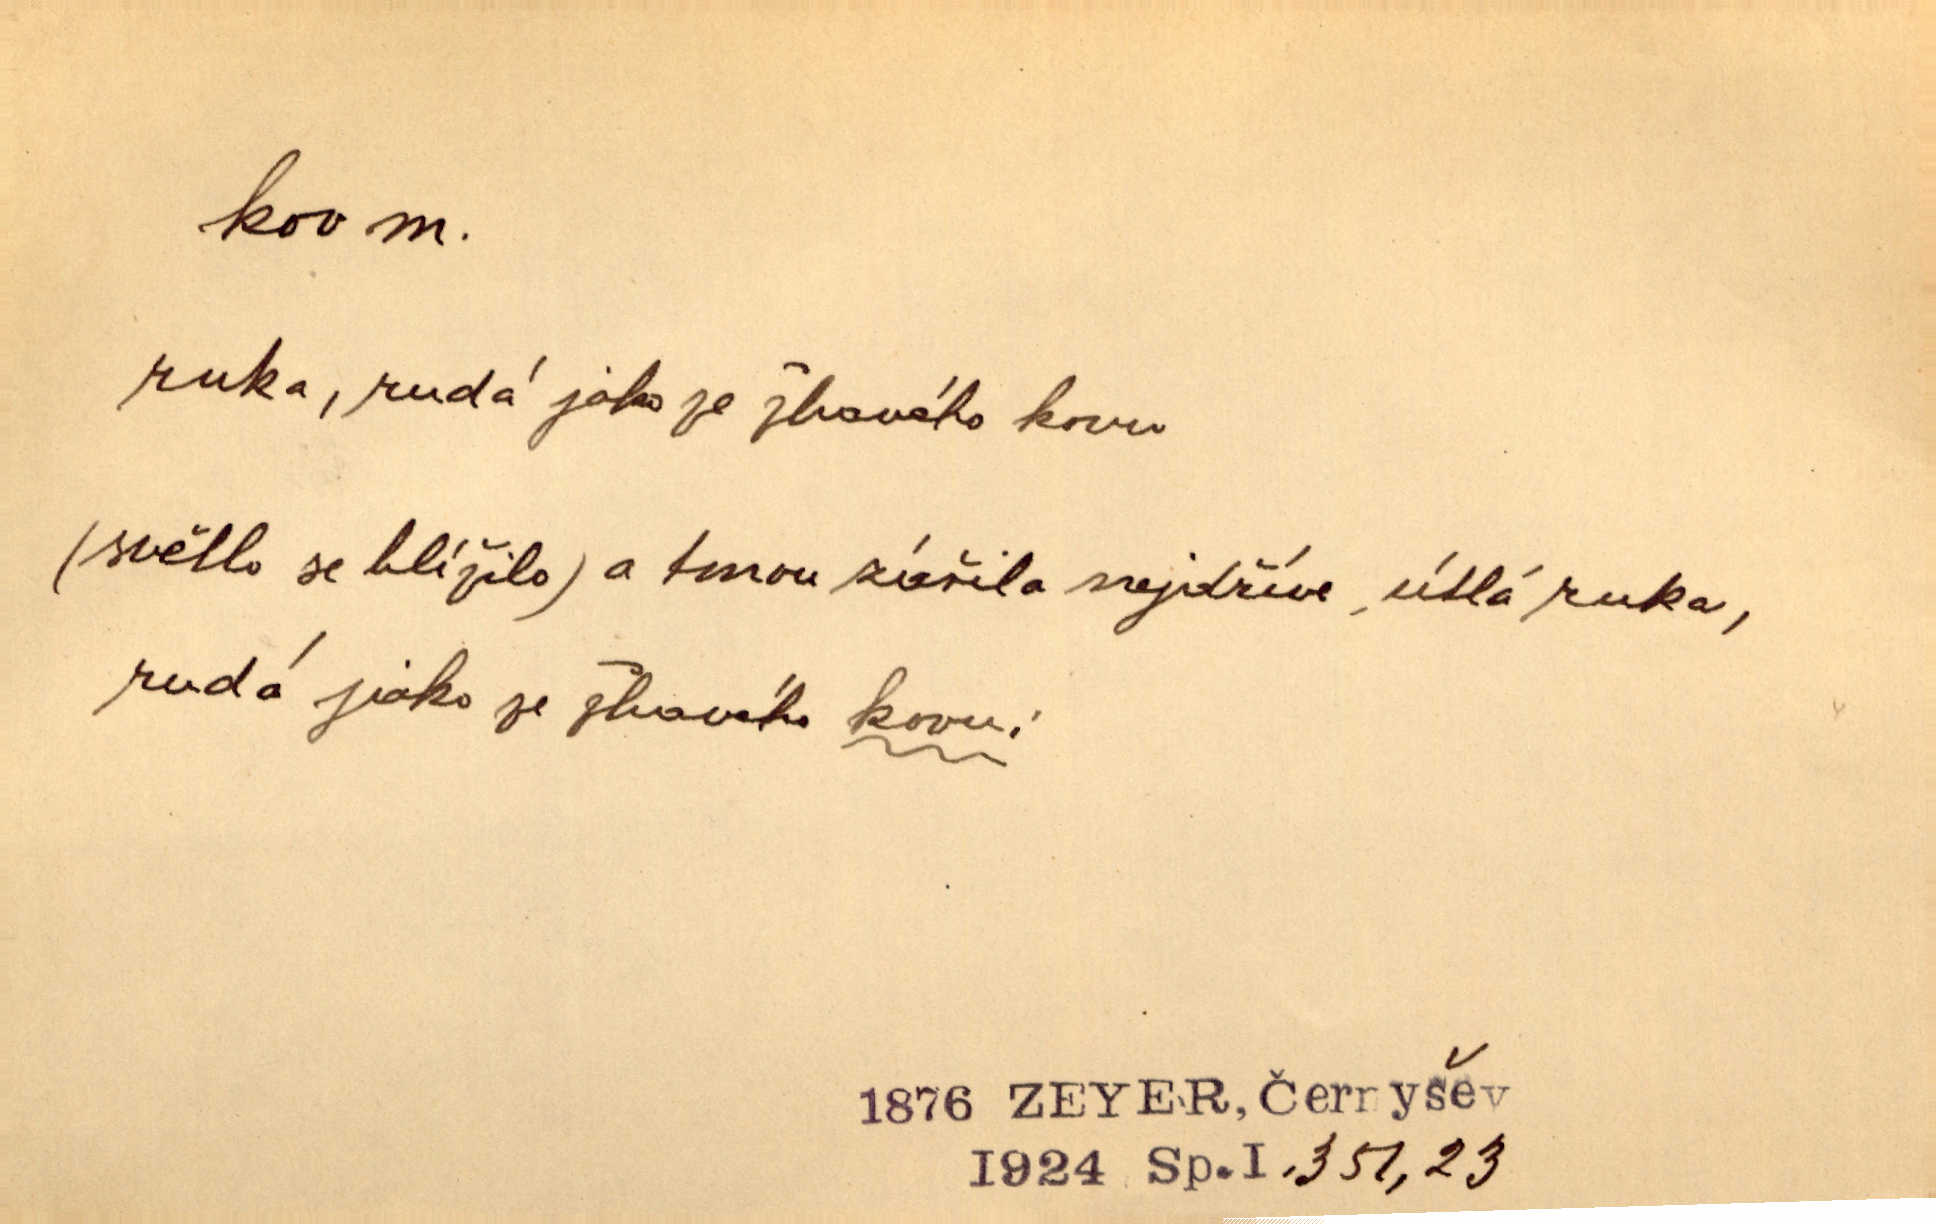 kov m.
ruka, rudá jako ze žhavého kovu
(světlo se blížilo) a tmou zářila nejdříve útlá ruka,
rudá jako ze žhavého kovu;
1876 ZEYER, Černyšev
1924 Sp.I.351,23